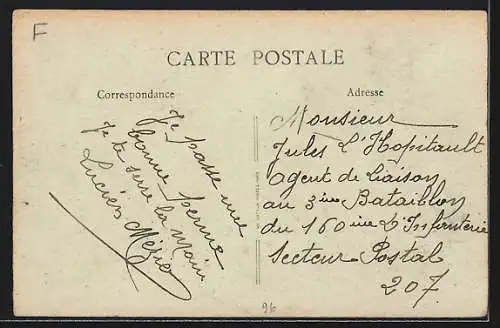 F
CARTE POSTALE
Correspondance
Adresse
Je passe une
bonne perme
Je te serre la main
Lucien
Monsieur
Jules L'Hopitault
agent de liaison
au 3ème Bataillon
du 160ème d'Infanterie
Secteur Postal
207
96